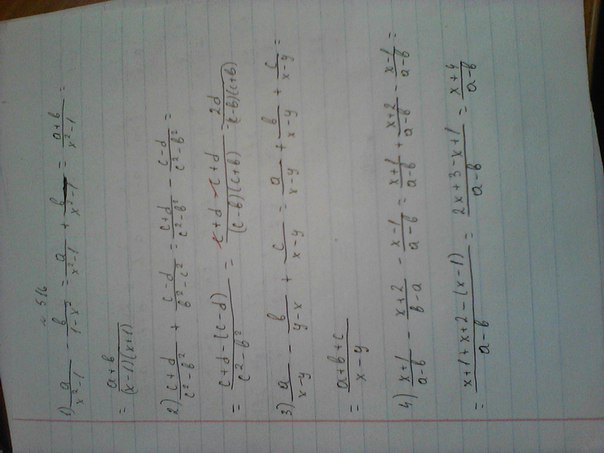 ~ 516
1) a/(x²-1) - b/(1-x²) = a/(x²-1) + b/(x²-1) = (a+b)/(x²-1) =
= (a+b)/((x-1)(x+1))
2) (c+d)/(c²-b²) + (c-d)/(b²-c²) = (c+d)/(c²-b²) - (c-d)/(c²-b²) =
= (c+d-(c-d))/(c²-b²) = (c+d-c+d)/((c-b)(c+b)) = 2d/((c-b)(c+b))
3) a/(x-y) - b/(y-x) + c/(x-y) = a/(x-y) + b/(x-y) + c/(x-y) =
= (a+b+c)/(x-y)
4) (x+1)/(a-b) - (x+2)/(b-a) - (x-1)/(a-b) = (x+1)/(a-b) + (x+2)/(a-b) - (x-1)/(a-b) =
= (x+1+x+2-(x-1))/(a-b) = (2x+3-x+1)/(a-b) = (x+4)/(a-b)